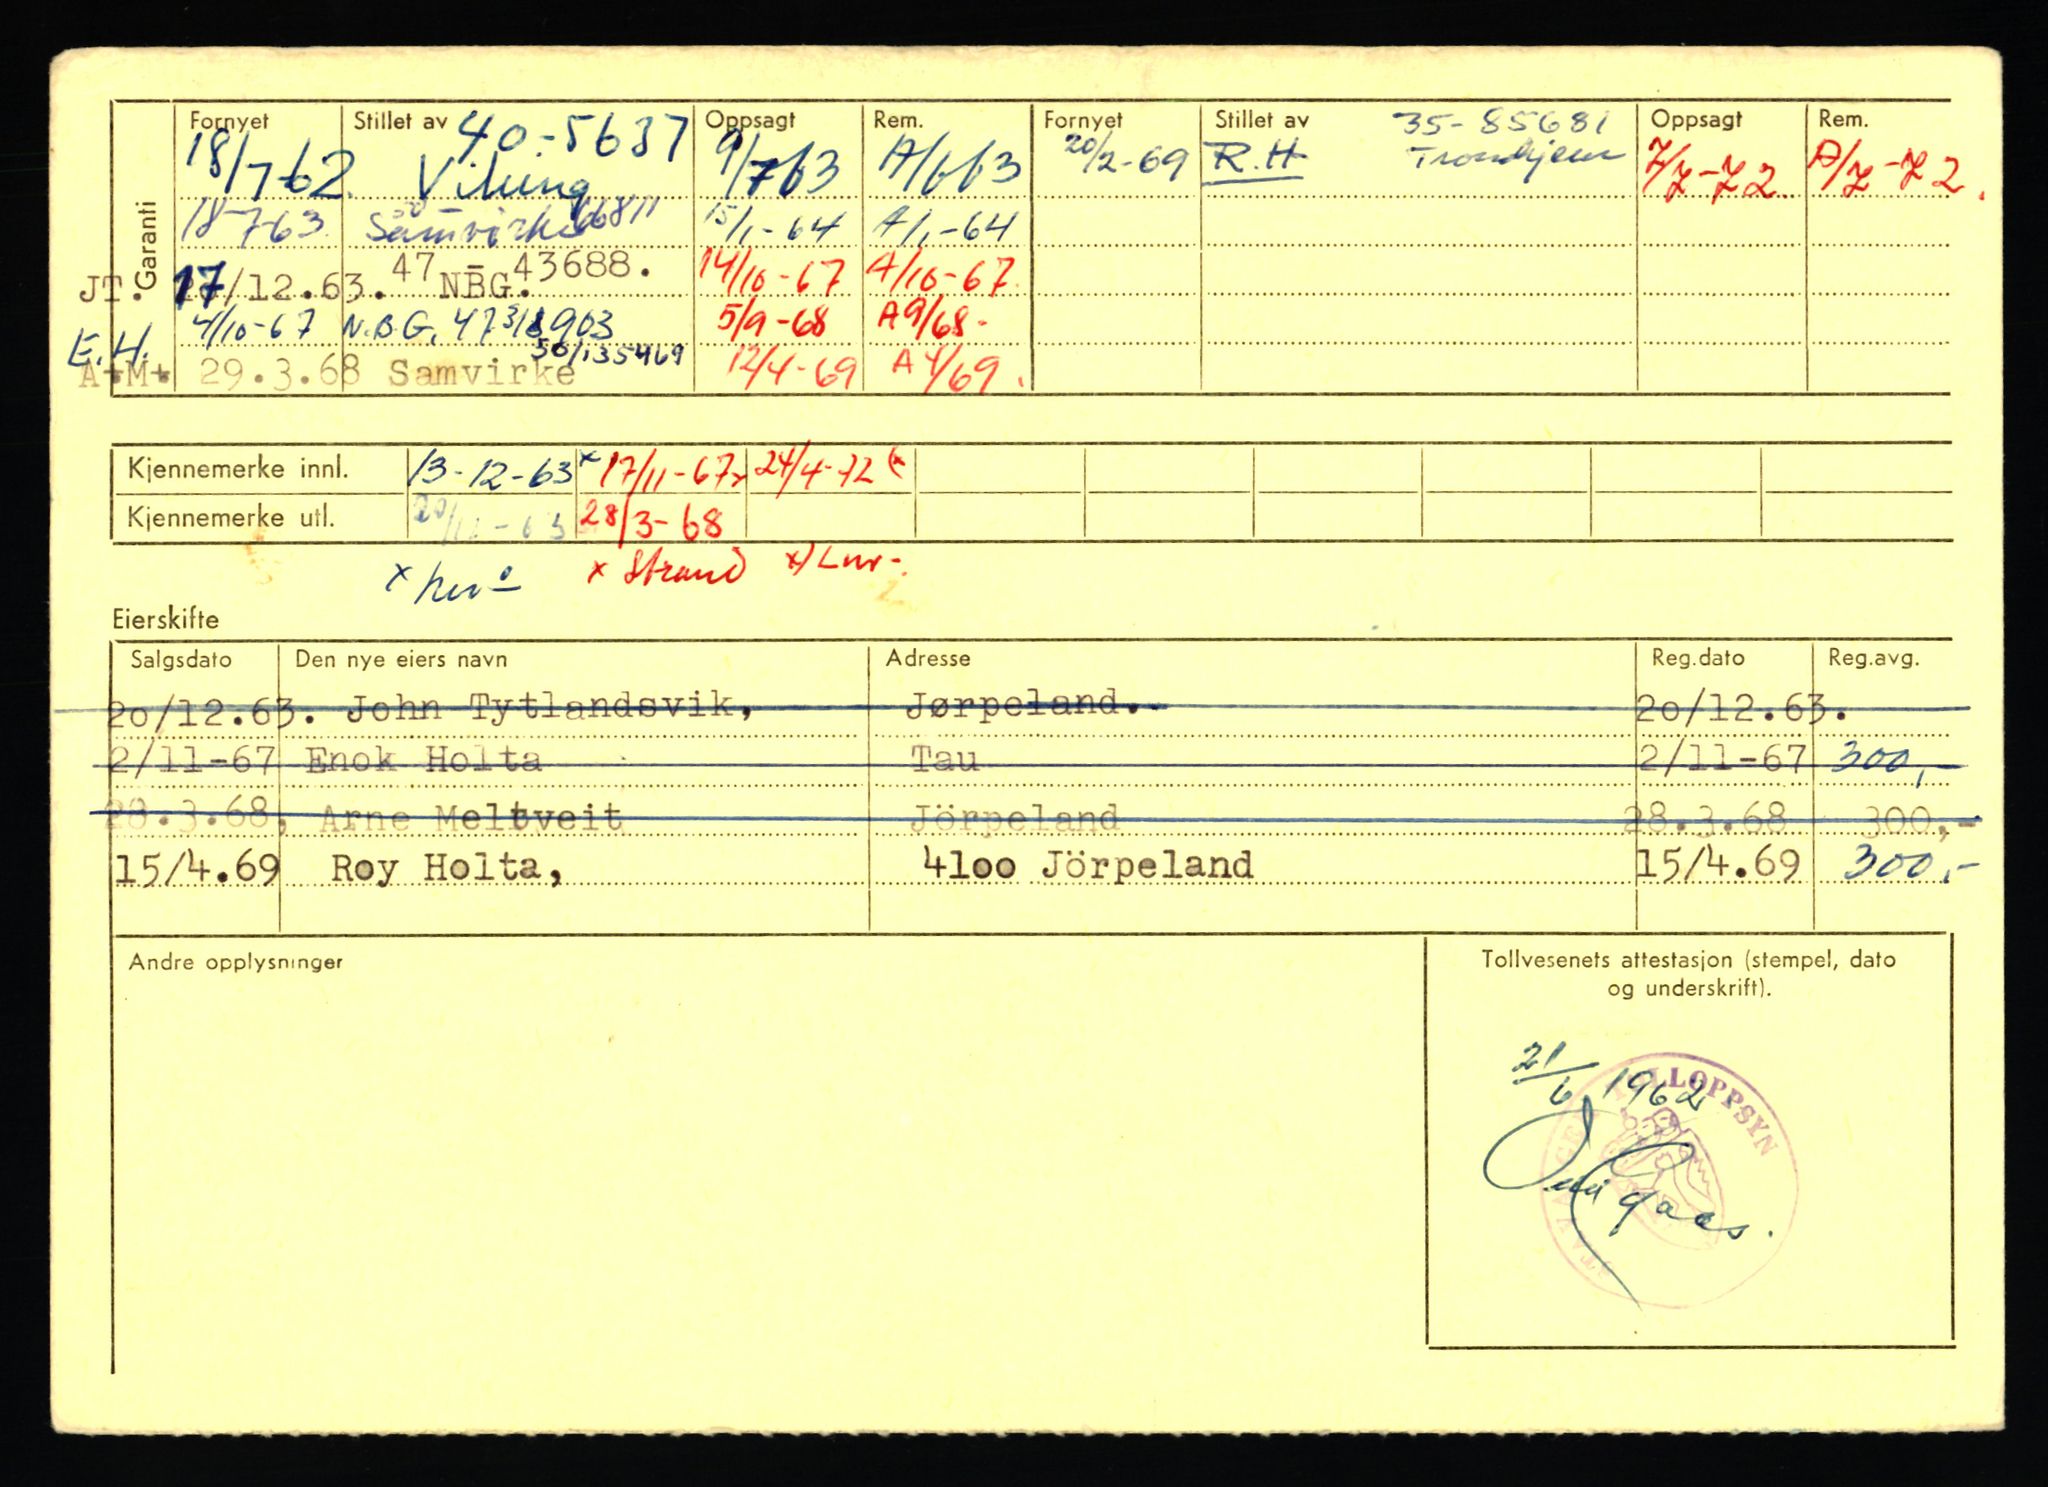 Garanti
Fornyet Stillet av Oppsagt Rem. Fornyet Stillet av Oppsagt Rem.
18/7-62. 40.-5637 Viking 9/7 63 A/6 63 20/2-69 R.H 35-85681 Trondhjem 7/7-72. A/7-72.
18-7-63. Samvirke 66811 15/1-64 A/1-64
JT. 17/12.63. 47 - 43688. NBG. 14/10-67 A/10-67
E.H. 4/10-67 N.B.G. 47 318903 5/9-68 A9/68-
A.M. 29.3.68 Samvirke 50/135469 12/4-69 A4/69.
Kjennemerke innl. 13-12-63 x 17/11-67 24/4-72 (x
Kjennemerke utl. 20/12-63 28/3-68
x x Strand x)
Eierskifte
Salgsdato Den nye eiers navn Adresse Reg.dato Reg.avg.
2o/12.63. John Tytlandsvik, Jørpeland. 2o/12.63.
2/11-67 Enok Holta Tau 2/11-67 300,-
28.3.68, Arne Meltveit Jörpeland 28.3.68 300,-
15/4.69 Roy Holta, 41oo Jörpeland 15/4.69 300,-
Andre opplysninger
Tollvesenets attestasjon (stempel, dato
og underskrift).
21/6 1962
TOLLOPPSYN